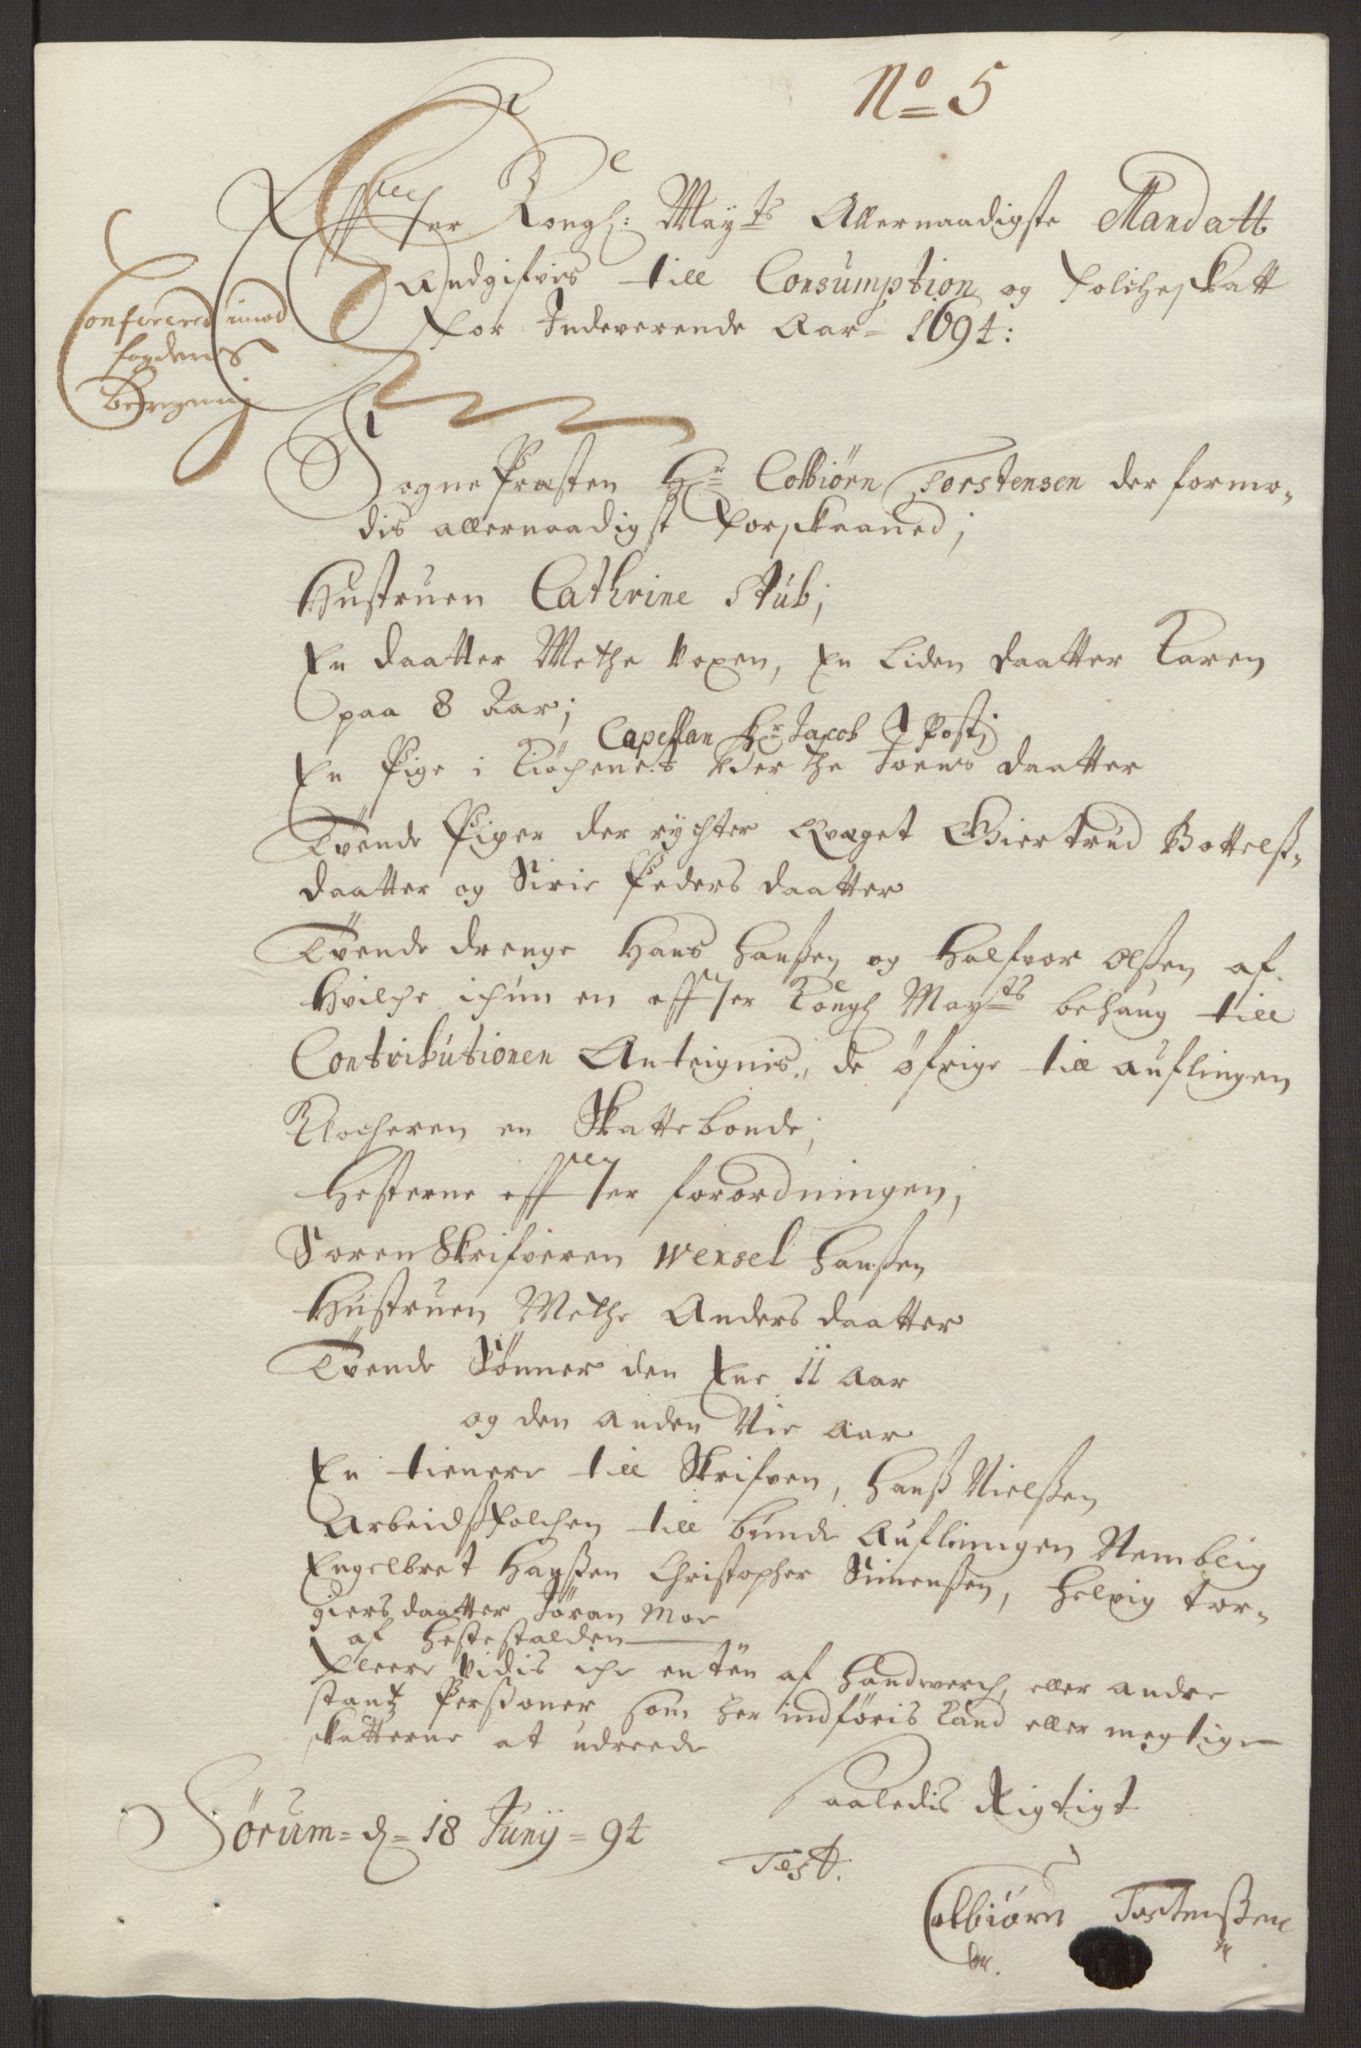 No 5
Effter Kongl: Mayts Allernaadigste Mandatt
Andgifvis till Consumption og Folcheskatt
for Indeverende Aar 1694:
Confereret imod
fogdens
Beregning
Sogne Præsten Hr Colbiörn Torstensen der formo-
dis allernaadigst forskaaned;
Hustruen Cathrine Stub;
En daatter Methe voxen, En Liden daatter Karen
paa 8 Aar;
Capellan Hr Jacob Post;
En Pige i Kiöchenet Berthe Joens daatter
Tvende Piger der rychter Qvæget Giertrud Bottelß-
daatter og Sirie Peders daatter
Tvende drenge Hans Hanßen og Halfvor Olßen af
Hvilche ichun en effter Kongl Mayts behaug till
Contributionen Anteignis, de öfrige till auflingen
Klocheren en Skattebonde;
Hesterne effter forordningen;
Soren Skrifveren Wexsel Hanßen
Hustruen Methe Anders daatter
Tvende Sönner den Ene 11 Aar
og den anden Nie Aar
En tienere till Skrifven, Hanß Nielßen
Arbeidßfolchen till bunde Auflingen Nemblig
Engelbret Hanßen Christopher Simenßen, Helvig Tor-
giers daatter Jöran Moe
af Hestestalden
Fleere vidis iche enten af Handwerch, eller andre
stantz Perßoner som her indföris kand eller megtige
skatterne at udreede
Saaledis Rigtigt
Sörum d 18 Junij 94
Test:
Colbiörn Torstenßen